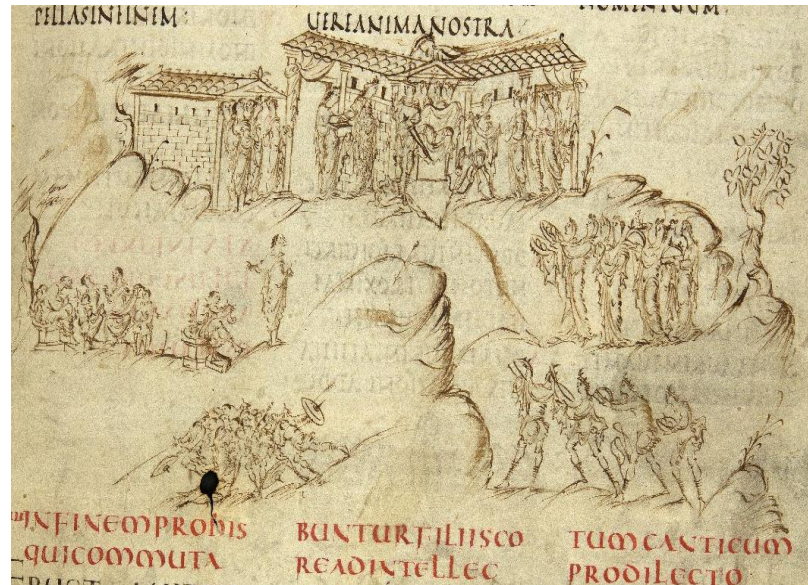 PELLASINFINEM
UEREANIMANOSTRA
INFINEMPROHIS
QUICOMMUTA
BUNTURFILIISCO
READINTELLEC
TUMCANTICUM
PRODILECTO